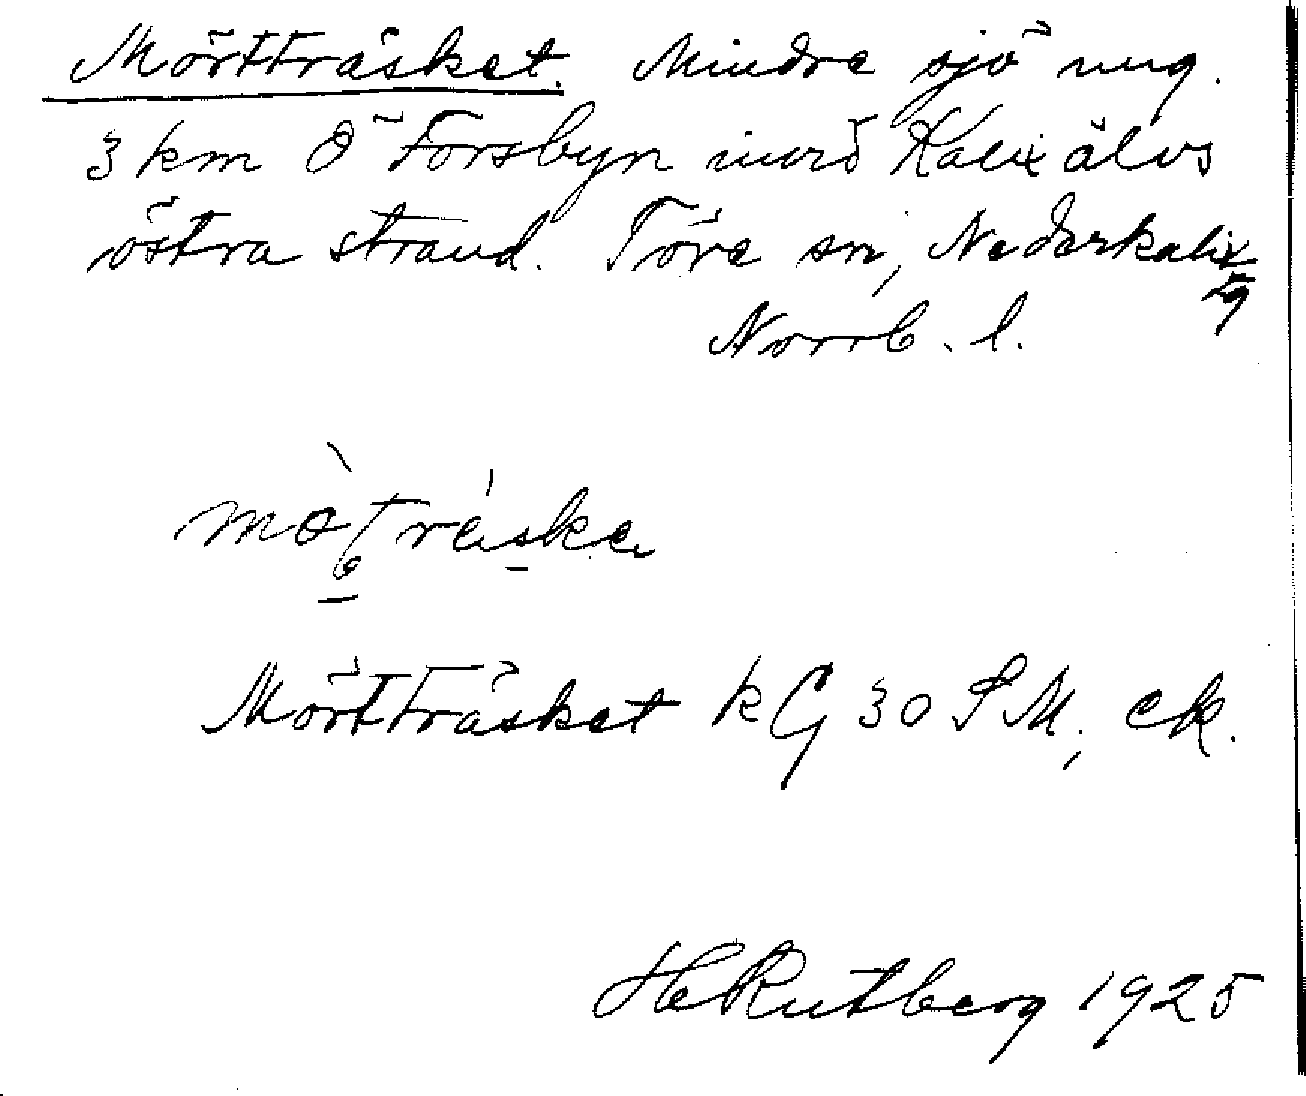 Mörtträsket. Mindre sjö ung.
3 km Ö Forsbyn invid Kalix älvs
östra strand. Töre sn, Nederkalix
tg
Norrb. l.
Mörtträsket kG 30 SM, ek.
H Rutberg 1925